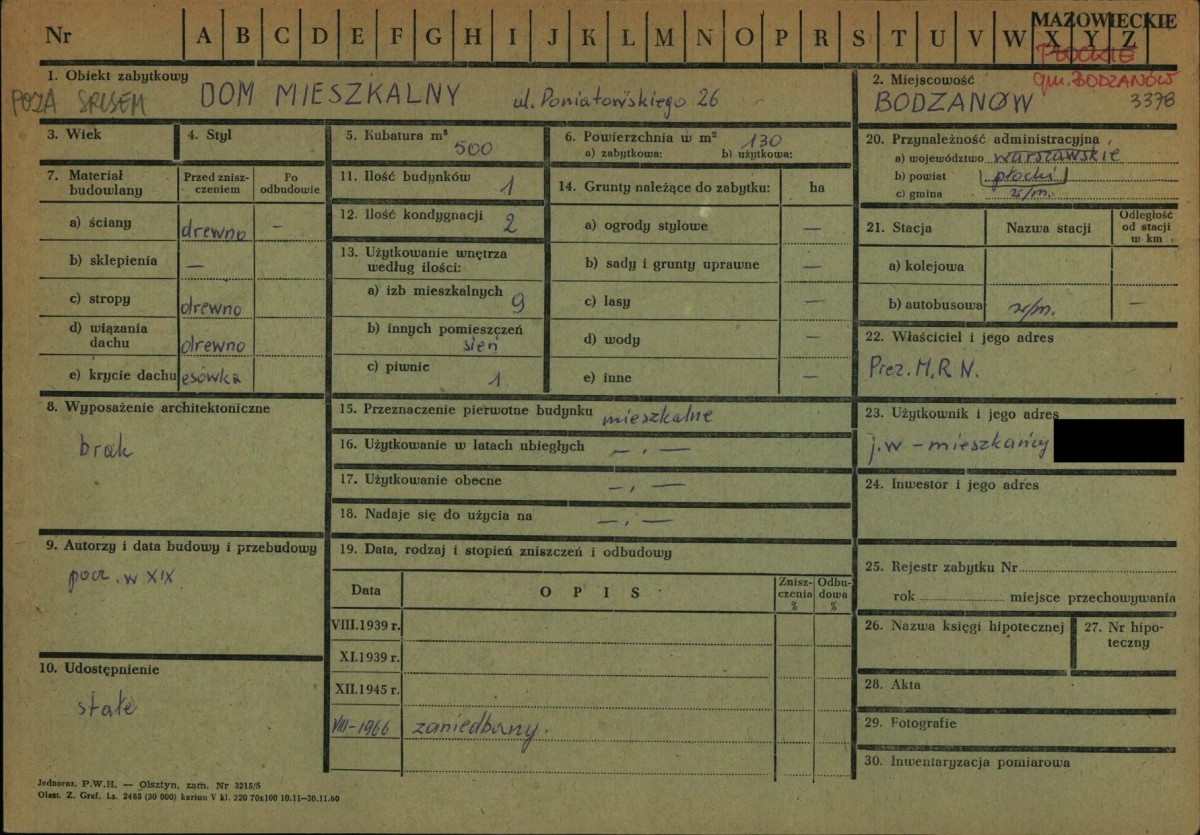 Nr A B C D E F G H I J K L M N O P R S T U V W X Y Z
MAZOWIECKIE
PŁOCKIE
gm. BODZANÓW
1. Obiekt zabytkowy
POZA SPISEM
DOM MIESZKALNY ul. Poniatowskiego 26
2. Miejscowość
BODZANÓW 3378
3. Wiek
4. Styl
5. Kubatura m³
500
6. Powierzchnia w m² 130
a) zabytkowa: b) użytkowa:
7. Materiał budowlany
Przed zniszczeniem
Po odbudowie
a) ściany drewno —
b) sklepienia —
c) stropy drewno
d) wiązania dachu drewno
e) krycie dachu esówka
8. Wyposażenie architektoniczne
brak
9. Autorzy i data budowy i przebudowy
pocz. w XIX
10. Udostępnienie
stałe
11. Ilość budynków 1
12. Ilość kondygnacji 2
13. Użytkowanie wnętrza
według ilości:
a) izb mieszkalnych 9
b) innych pomieszczeń
sień
c) piwnic 1
14. Grunty należące do zabytku: ha
a) ogrody stylowe —
b) sady i grunty uprawne —
c) lasy —
d) wody —
e) inne —
15. Przeznaczenie pierwotne budynku mieszkalne
16. Użytkowanie w latach ubiegłych — . —
17. Użytkowanie obecne — . —
18. Nadaje się do użycia na — . —
19. Data, rodzaj i stopień zniszczeń i odbudowy
Data OPIS Zniszczenia % Odbudowa %
VIII.1939 r.
XI.1939 r.
XII.1945 r.
VIII-1966 zaniedbany.
20. Przynależność administracyjna
a) województwo warszawskie
b) powiat płocki
c) gmina w/m.
21. Stacja Nazwa stacji Odległość od stacji w km
a) kolejowa
b) autobusowa w/m. —
22. Właściciel i jego adres
Prez. M.R.N.
23. Użytkownik i jego adres
j.w - mieszkańcy
24. Inwestor i jego adres
25. Rejestr zabytku Nr
rok miejsce przechowywania
26. Nazwa księgi hipotecznej
27. Nr hipoteczny
28. Akta
29. Fotografie
30. Inwentaryzacja pomiarowa
Jednoraz. P.W.H. — Olsztyn, zam. Nr 3215/S
Olszt. Z. Graf. Lz. 2485 (30 000) karton V kl. 220 70x100 10.11—30.11.60